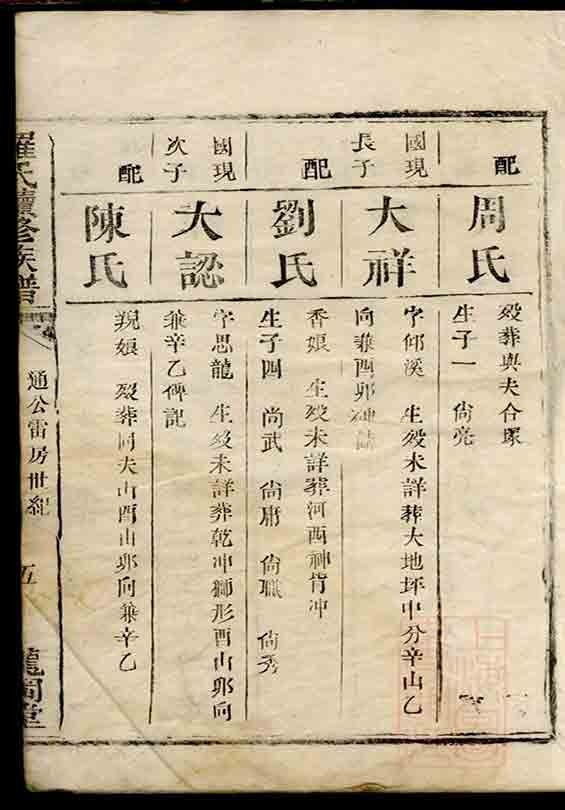 配
周氏
歿葬與夫合塚
生子一 尙亮
國現
長子
大祥
字仰溪 生歿未詳葬大地坪中分辛山乙
向兼酉卯神誌
配
劉氏
香娘 生歿未詳葬河西神背冲
生子四 尙武 尙庸 尙職 尙秀
國現
次子
大認
字思龍 生歿未詳葬乾冲獅形酉山卯向
兼辛乙碑記
配
陳氏
親娘 歿葬同夫山酉山卯向兼辛乙
羅氏續修族譜
通公雷房世紀
五